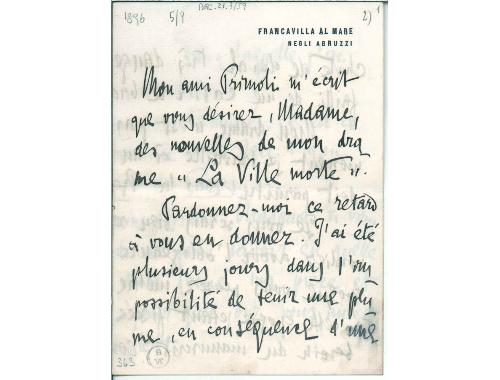 1896 5/9
2) 1
FRANCAVILLA AL MARE
NEGLI ABRUZZI
Mon ami Primoli m'écrit
que vous désirez, Madame,
des nouvelles de mon dra
me "La Ville morte".
Pardonnez-moi ce retard
à vous en donner. J'ai été
plusieurs jours dans l'im
possibilité de tenir une plu
me, en conséquence d'une
363